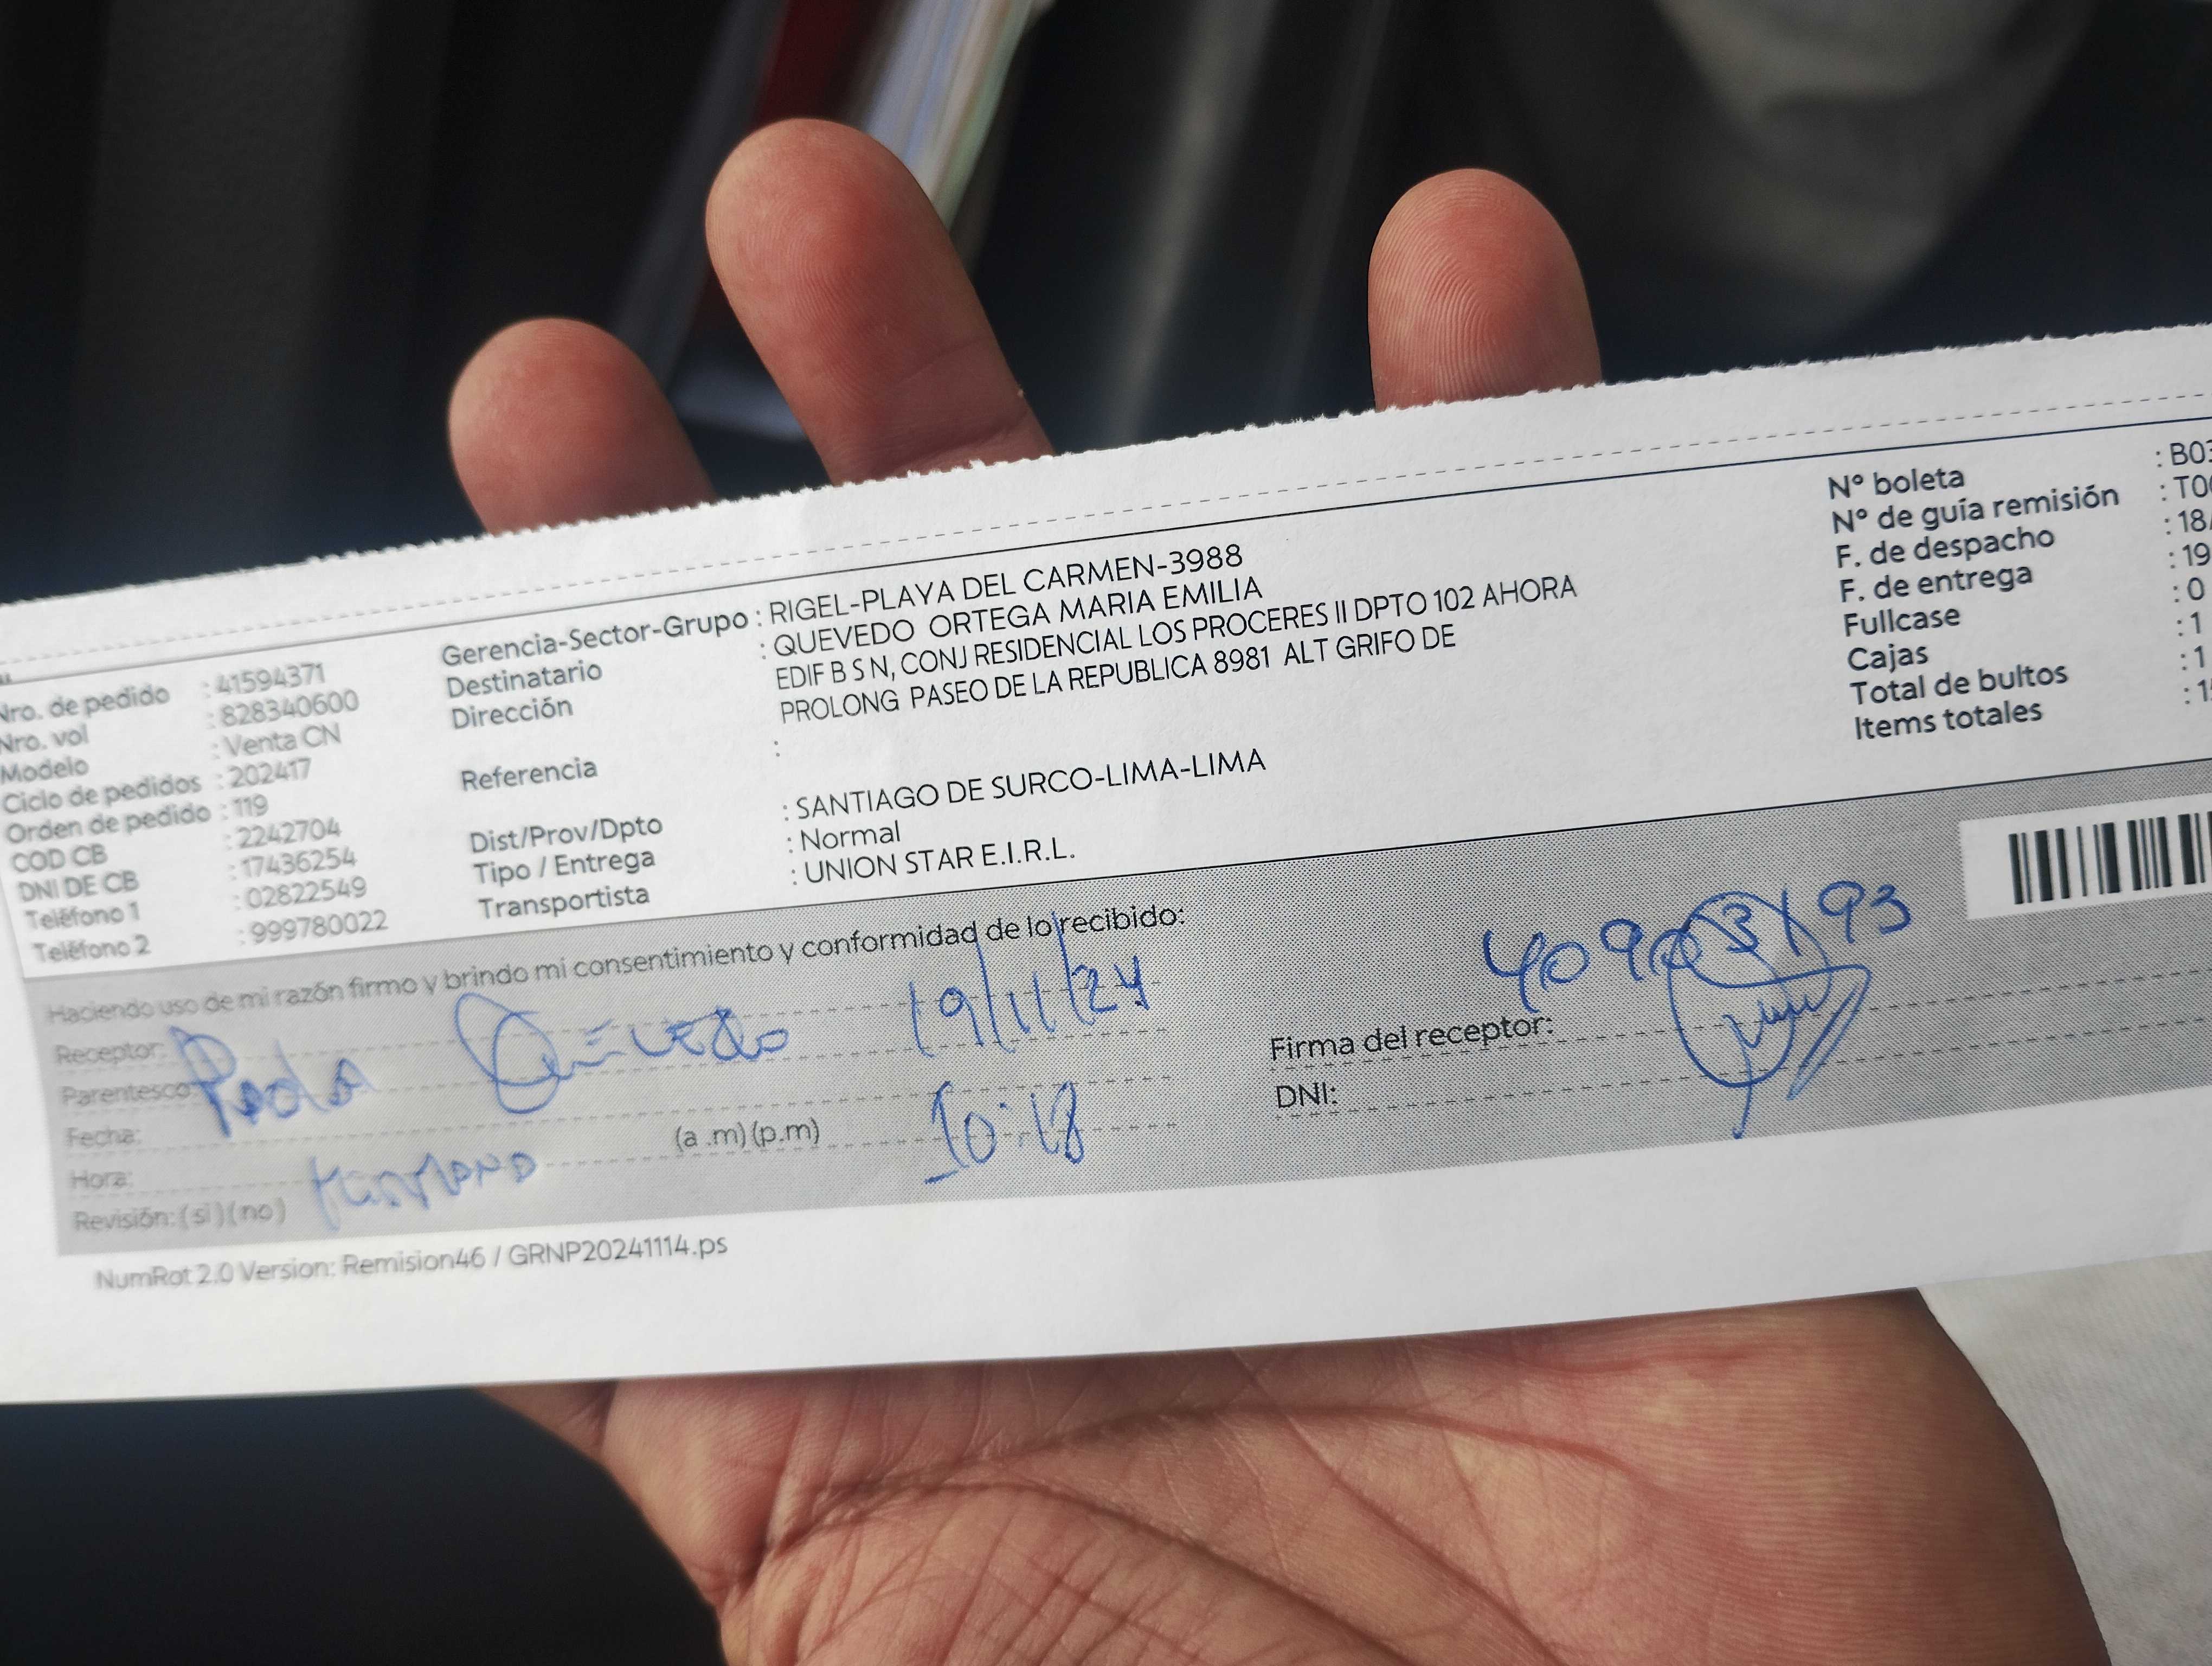 Nro. de pedido : 41594371
Nro. vol : 828340600
Modelo : Venta CN
Ciclo de pedidos : 202417
Orden de pedido : 119
COD CB : 2242704
DNI DE CB : 17436254
Teléfono 1 : 02822549
Teléfono 2 : 999780022
Gerencia-Sector-Grupo : RIGEL-PLAYA DEL CARMEN-3988
Destinatario : QUEVEDO ORTEGA MARIA EMILIA
Dirección EDIF B S N, CONJ RESIDENCIAL LOS PROCERES II DPTO 102 AHORA
PROLONG PASEO DE LA REPUBLICA 8981 ALT GRIFO DE
Referencia :
Dist/Prov/Dpto : SANTIAGO DE SURCO-LIMA-LIMA
Tipo / Entrega : Normal
Transportista : UNION STAR E.I.R.L.
N° boleta : B03
N° de guía remisión : T00
F. de despacho : 18/
F. de entrega : 19
Fullcase : 0
Cajas : 1
Total de bultos : 1
Items totales : 1
Haciendo uso de mi razón firmo y brindo mi consentimiento y conformidad de lo recibido:
Receptor:
Parentesco:
Paola Quevedo 19/11/24
Fecha:
Hora: (a .m) (p.m) 10:18
Revisión: (si) (no)
Firma del receptor:
DNI:
NumRot 2.0 Version: Remision46 / GRNP20241114.ps